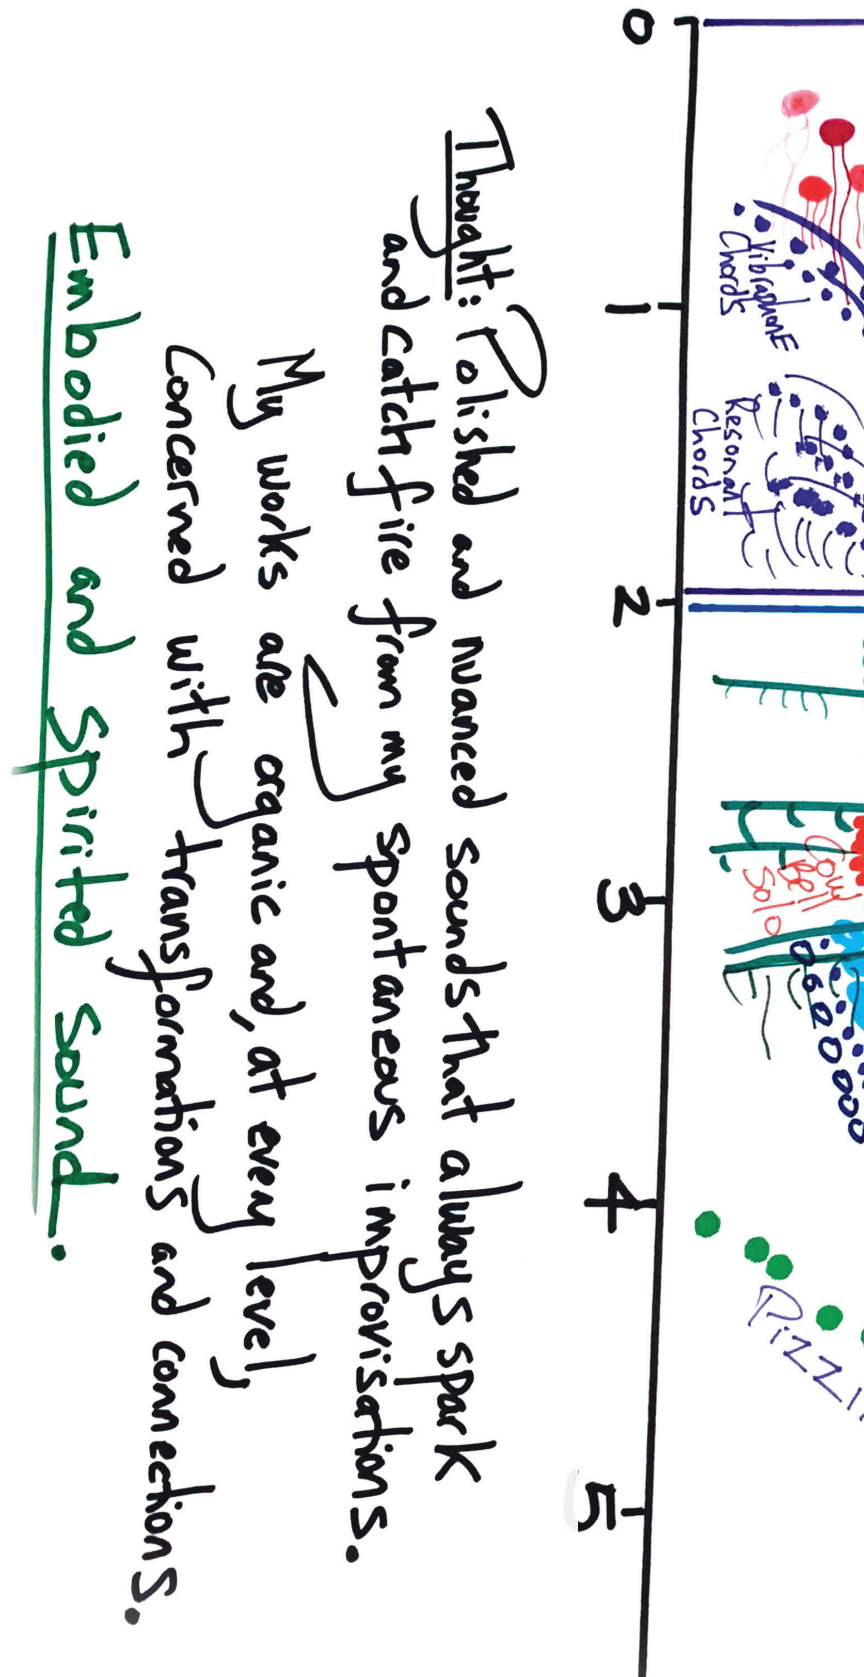 Vibraphone
Chords
Resonant
Chords
Cow
Bell
Solo
0 1 2 3 4 5
Thought: Polished and nuanced sounds that always spark
and catch fire from my spontaneous improvisations.
My works are organic and, at every level,
concerned with transformations and connections.
Embodied and Spirited Sound.